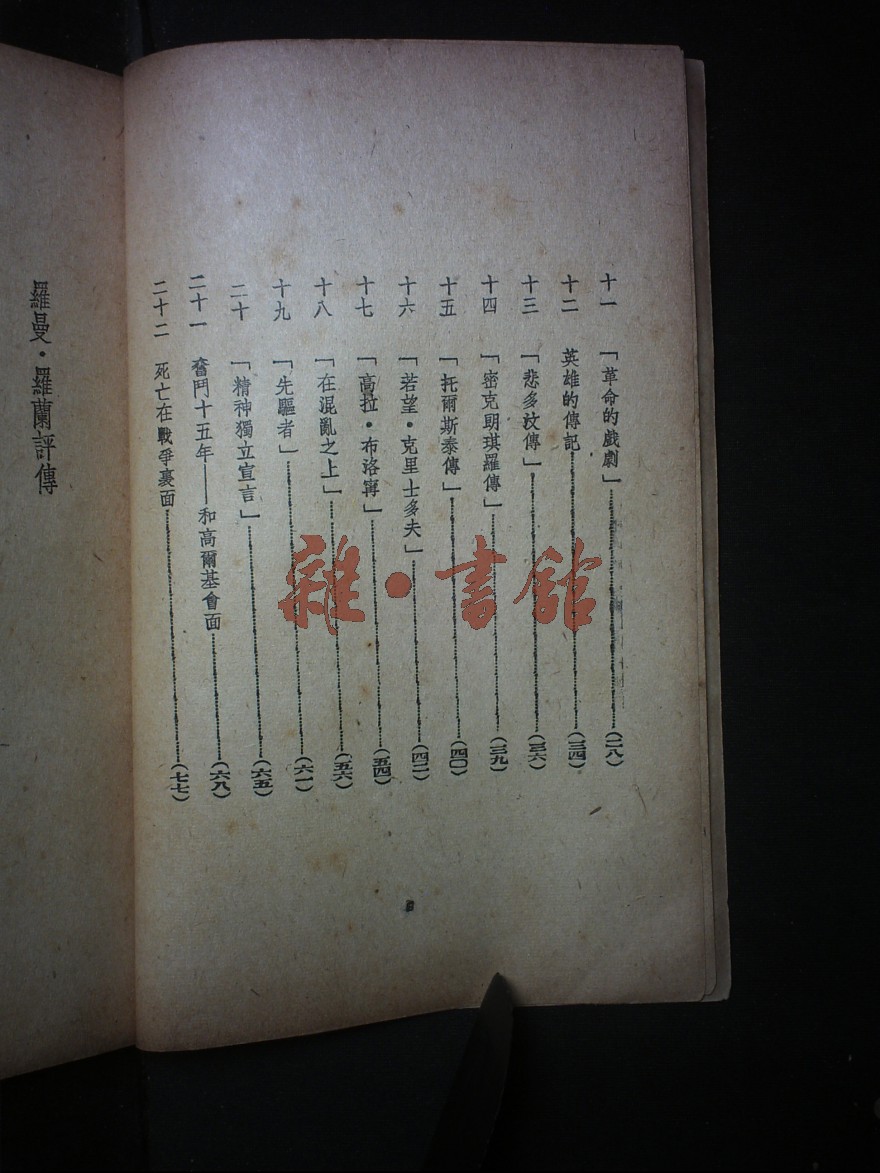 十一 「革命的戲劇」（二八）
十二 英雄的傳記（三四）
十三 「悲多汶傳」（三六）
十四 「密克朗琪羅傳」（三九）
十五 「托爾斯泰傳」（四〇）
十六 「若望・克里士多夫」（四二）
十七 「高拉・布洛甯」（五四）
十八 「在混亂之上」（五六）
十九 「先驅者」（六一）
二十 「精神獨立宣言」（六五）
二十一 奮鬥十五年——和高爾基會面（六八）
二十二 死亡在戰爭裏面（七七）
羅曼・羅蘭評傳
雜・書館